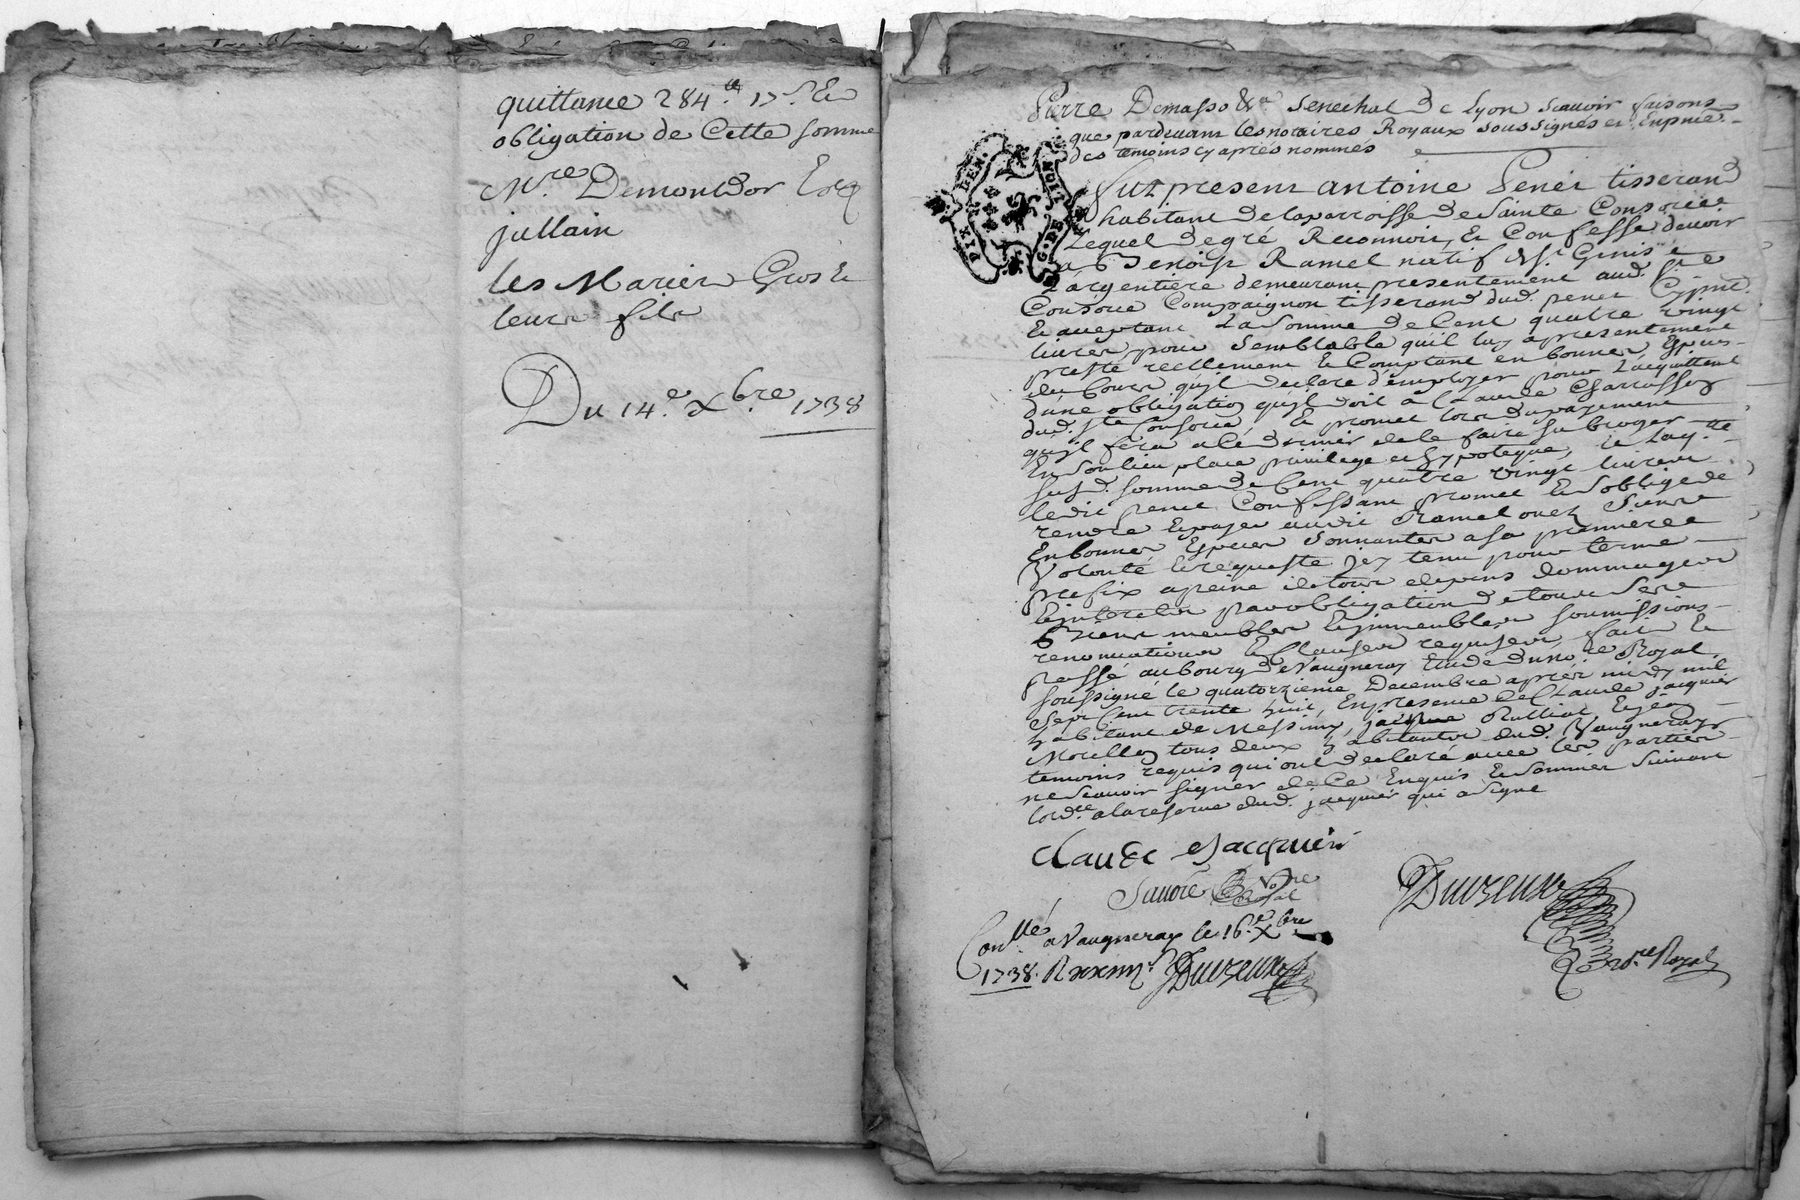 quittance 284 ᵗᵗ 17 ˢ Et
obligation de Cette somme
Mʳᵉ Demontdor Cote
jullain
les Mariés Gros Et
leurs fils
Du 14.ᵉ Xbre 1738
Pierre Demasso &ᵃ Senechal De Lyon Scavoir faisons
que pardevant les notaires Royaux soussignés et En pnce
des temoins cy aprés nommés
DIX DEN.
G. DE
Fut present antoine Penet tisserand
habitant de la parroisse de Sainte Consorce
Lequel De gré Reconnoit, Et Confesse devoir
a Benoist Ramel natif de Sᵗ Genis
L'argentiere demeurant presentement aud. Sᵗᵉ
Consorce Compaignon tisserand dud. penet Cy pnt
Et acceptant La Somme De Cent quatre vingt
livres, pour Semblable qu'il luy a presentement
presté reellement Et Comptant en bonnes Especes
du Cours qu'il declare d'employer pour L'acquittement
d'une obligation qu'il doit a Claude Charrassy
dud. Ste Consorce, Et promet lors du payement
qu'il fera a ce dernier de le faire Subroger
En Son lieu place privilege et hypoteque, le laq.ˡˡᵉ
susd. somme de Cent quatre vingt livres
ledit penet Confessant promet Et S'oblige de
rendre Et payer audit Ramel
En bonnes Especes Sonnantes a Sa premiere
Volonté Et requeste Icy tenu pour terme
prefix a peine de tous depens dommages
Et interests par obligation de tous Ses
Biens meubles Et immeubles Soumissions
renonciations Et Clauses requises, fait Et
passé au bourg de Vaugneray Etude du noʳᵉ Royal
soussigné le quatorzieme Decembre apres midy mil
Sept Cent trente huit, En presence de Claude jacquier
habitant de Messimy, jacque Rulliat Et jean
Morellon tous deux habitants dud. Vaugneray
temoins requis qui ont declaré avec les parties
ne Scavoir Signer de Ce Enquis Et Sommés Suivant
lord.ᶜᵉ a la reserve dud. jacquier qui a Signé
claude Jacquier
Duvzeuse
noʳᵉ Royal
Con.ˡˡᵉ a Vaugneray le 16.ᵉ Xbre
1738. R